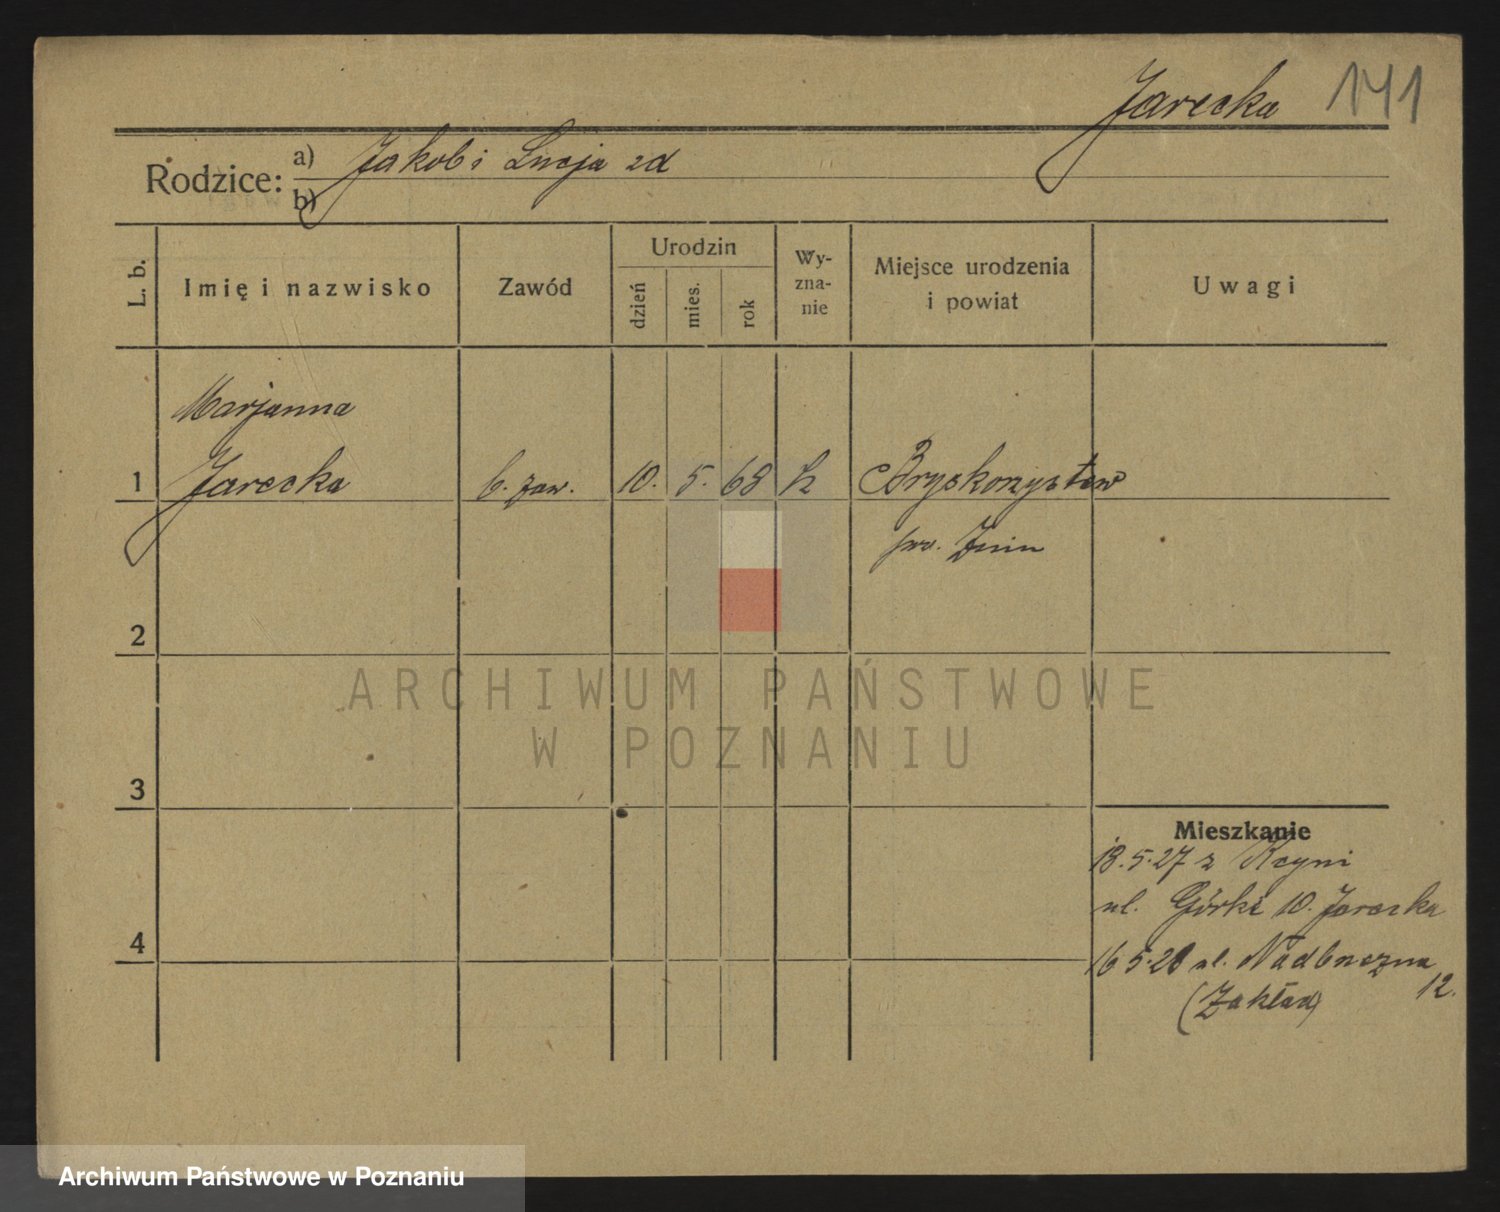 Jarecka 141
Rodzice: a) Jakob i Lucja zd
b)
L. b.
Imię i nazwisko
Zawód
Urodzin
dzień
mies.
rok
Wy-
zna-
nie
Miejsce urodzenia
i powiat
Uwagi
Marjanna
1 Jarecka b. zaw. 10. 5. 68 k Bryskorzystew
pow. Żnin
2
3
4
Mieszkanie
18.5.27 z Kcyni
ul. Górki 10. Jarecka
16.5.28 ul. Nadbrzezna
12.
(Zakład)
ARCHIWUM PAŃSTWOWE
W POZNANIU
Archiwum Państwowe w Poznaniu